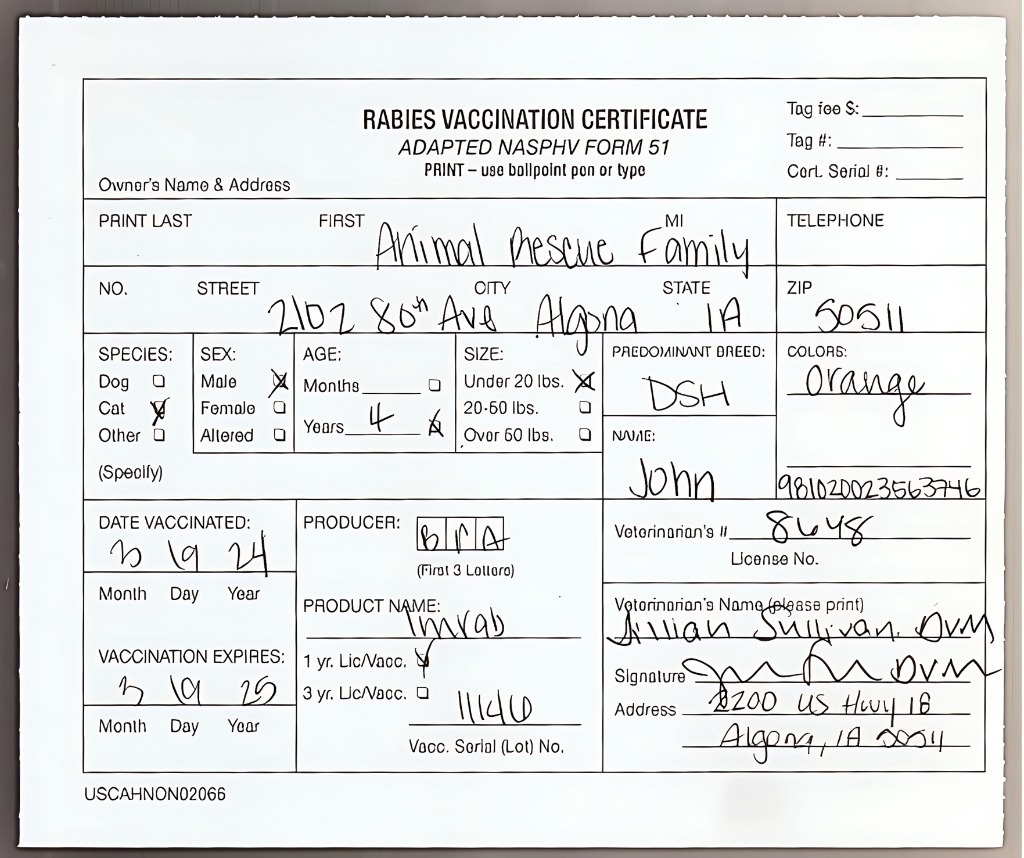 RABIES VACCINATION CERTIFICATE
ADAPTED NASPHV FORM 51
PRINT – use ballpoint pen or type
Tag fee $:
Tag #:
Cert. Serial #:
Owner's Name & Address
PRINT LAST FIRST MI TELEPHONE
Animal Rescue Family
NO. STREET CITY STATE ZIP
2102 80th Ave Algona IA 50511
SPECIES: SEX: AGE: SIZE: PREDOMINANT BREED: COLORS:
Dog Male Months Under 20 lbs. DSH Orange
Cat Female Years 4 20-50 lbs.
Other Altered Over 50 lbs. NAME:
(Specify) John 981020023563746
DATE VACCINATED: PRODUCER: Veterinarian's # 8648
3 19 24 (First 3 Letters) License No.
Month Day Year PRODUCT NAME: Veterinarian's Name (please print)
Imrab Jillian Sullivan DVM
VACCINATION EXPIRES: 1 yr. Lic/Vacc. Signature DVM
3 19 25 3 yr. Lic/Vacc. 11146 Address 2200 US Hwy 18
Month Day Year Vacc. Serial (Lot) No. Algona, IA 50511
USCAHNON02066